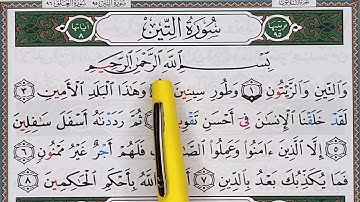 سُورَةُ التِّينِ
بِسْمِ اللَّهِ الرَّحْمَٰنِ الرَّحِيمِ
وَالتِّينِ وَالزَّيْتُونِ ١ وَطُورِ سِينِينَ وَهَٰذَا الْبَلَدِ الْأَمِينِ ٣
لَقَدْ خَلَقْنَا الْإِنسَانَ فِي أَحْسَنِ تَقْوِيمٍ ثُمَّ رَدَدْنَاهُ أَسْفَلَ سَافِلِينَ
٥ إِلَّا الَّذِينَ ءَامَنُوا وَعَمِلُوا فَلَهُمْ أَجْرٌ غَيْرُ مَمْنُونٍ ٦
فَمَا يُكَذِّبُكَ بَعْدُ بِالدِّينِ ٧ اللَّهُ بِأَحْكَمِ الْحَاكِمِينَ ٨